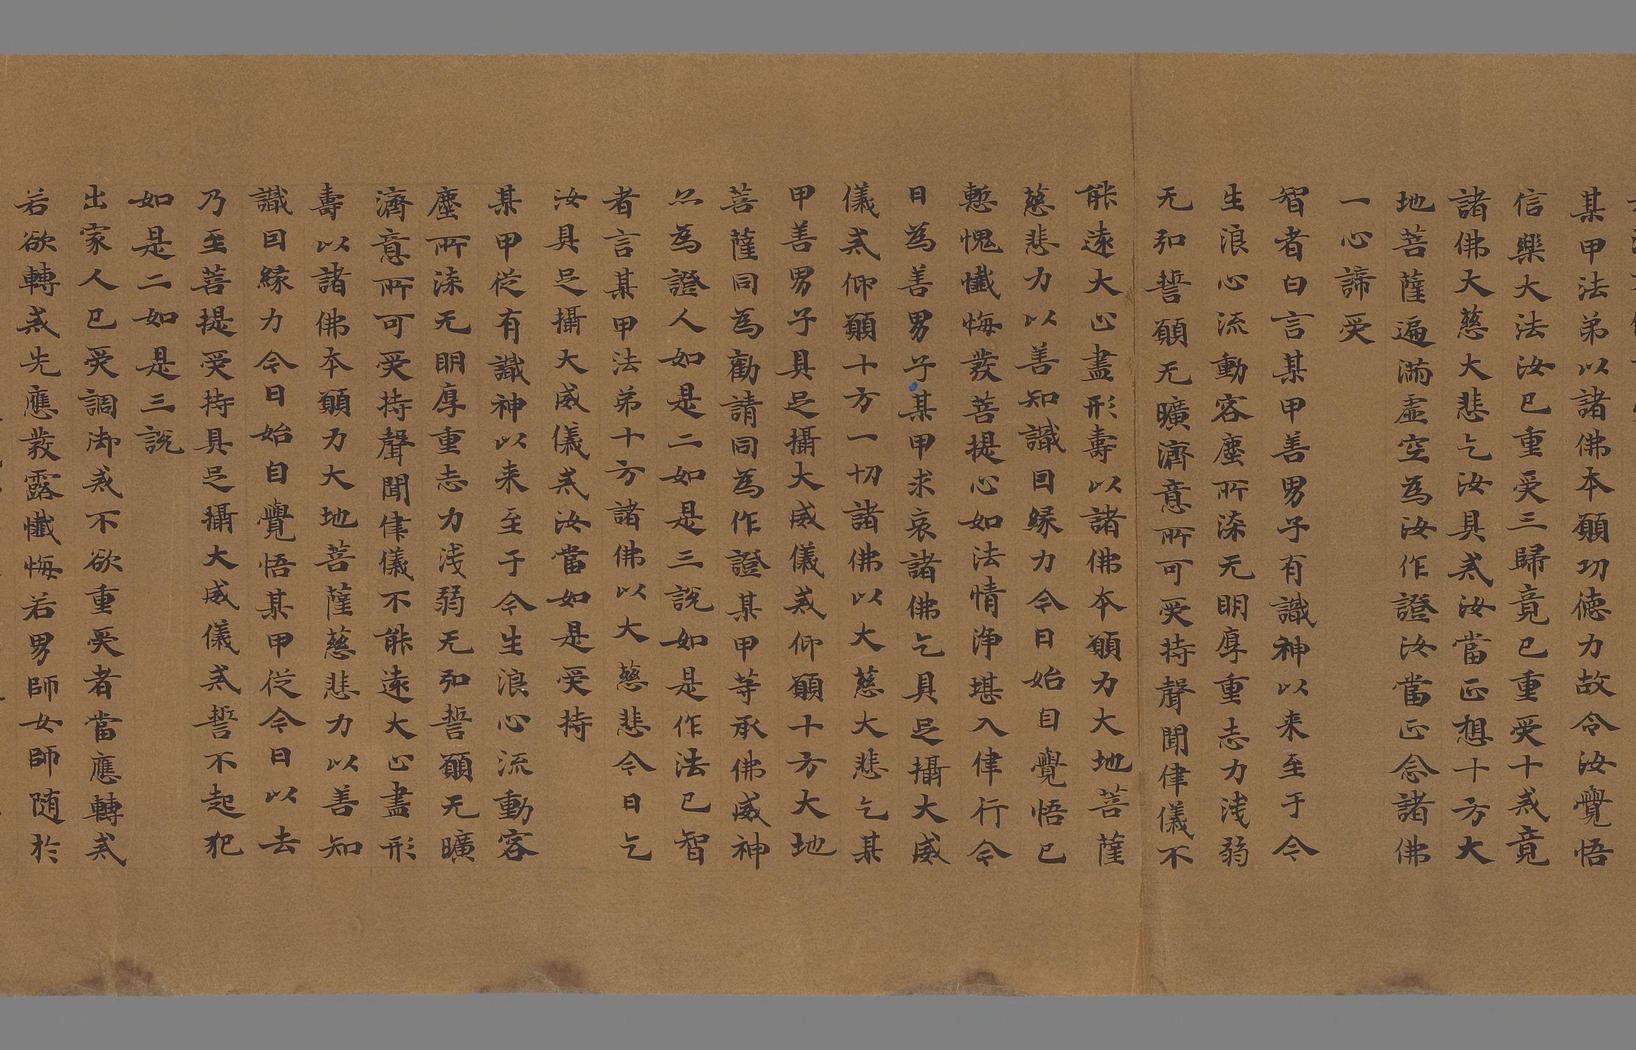 某甲法弟以諸佛本願功德力故令汝覺悟
信樂大法汝已重受三歸竟已重受十戒竟
諸佛大慈大悲乞汝具戒汝當正想十方大
地菩薩遍滿虛空為汝作證汝當正念諸佛
一心諦受
智者曰言某甲善男子有識神以来至于令
生浪心流動客塵所深无明厚重志力浅弱
无弘誓願无曠濟意所可受持聲聞律儀不
能遠大心盡形壽以諸佛本願力大地菩薩
慈悲力以善知識因緣力令日始自覺悟已
慙愧懺悔發菩提心如法情淨堪入律行令
日為善男子某甲求哀諸佛乞具足攝大威
儀戒仰願十方一切諸佛以大慈大悲乞某
甲善男子具足攝大威儀戒仰願十方大地
菩薩同為勸請同為作證某甲等承佛威神
以為證人如是二如是三說如是作法已智
者言某甲法弟十方諸佛以大慈悲令日乞
汝具足攝大威儀戒汝當如是受持
某甲従有識神以来至于令生浪心流動客
塵所深无明厚重志力浅弱无弘誓願无曠
濟意所可受持聲聞律儀不能遠大心盡形
壽以諸佛本願力大地菩薩慈悲力以善知
識因緣力令日始自覺悟某甲従令日以去
乃至菩提受持具足攝大威儀戒誓不起犯
如是二如是三說
出家人已受調御戒不欲重受者當應轉戒
若欲轉戒先應發露懺悔若男師女師随於